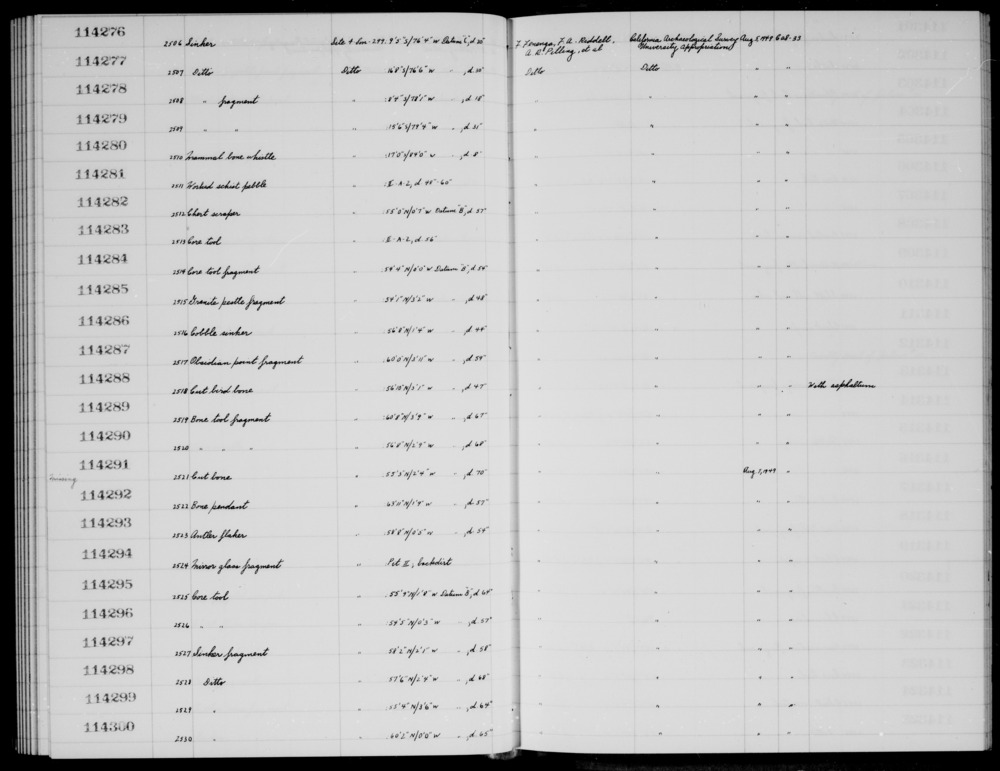 114276 2506 Sinker Site 4-Son-299. 9'5"S/76'4"W Datum "C", d 30" F. Fenenga, F. A. Riddell, California Archaeological Survey Aug 5, 1949 608-33
A. R. Pilling, et al University Appropriations
114277 2507 Ditto Ditto 16'8"S/76'6"W " , d 30" Ditto Ditto " "
114278 2508 " fragment " 8'4"S/78'1"W " , d 18" " " " "
114279 2509 " " " 15'6"S/79'4"W " , d 31" " " " "
114280 2510 Mammal bone whistle " 17'0"S/84'0"W " , d 8" " " " "
114281 2511 Worked schist pebble " II-A-2, d 48"-60" " " " "
114282 2512 Chert scraper " 55'0"N/0'7"W Datum "B", d 57" " " " "
114283 2513 Core tool " II-A-2, d 56" " " " "
114284 2514 Core tool fragment " 54'4"N/0'0"W Datum "B", d 54" " " " "
114285 2515 Granite pestle fragment " 59'1"N/3'2"W " , d 48" " " " "
114286 2516 Cobble sinker " 56'8"N/1'4"W " , d 44" " " " "
114287 2517 Obsidian point fragment " 60'0"N/3'11"W " , d 54" " " " "
114288 2518 Cut bird bone " 56'10"N/3'1"W " , d 47" " " " " With asphaltum
114289 2519 Bone tool fragment " 60'8"N/3'9"W " , d 67" " " " "
114290 2520 " " " " 56'8"N/2'9"W " , d 68" " " " "
114291 2521 Cut bone " 55'5"N/2'4"W " , d 70" " " Aug. 7, 1949 "
Missing
114292 2522 Bone pendant " 65'11"N/1'9"W " , d 57" " " " "
114293 2523 Antler flaker " 58'8"N/0'5"W " , d 54" " " " "
114294 2524 Mirror glass fragment " Pit II, backdirt " " " "
114295 2525 Core tool " 55'9"N/1'8"W Datum "B", d 64" " " " "
114296 2526 " " " 59'5"N/0'3"W " , d 57" " " " "
114297 2527 Sinker fragment " 58'2"N/2'1"W " , d 58" " " " "
114298 2528 Ditto " 57'6"N/2'4"W " , d 65" " " " "
114299 2529 " " 55'4"N/3'6"W " , d 64" " " " "
114300 2530 " " 60'2"N/0'0"W " , d 65" " " " "